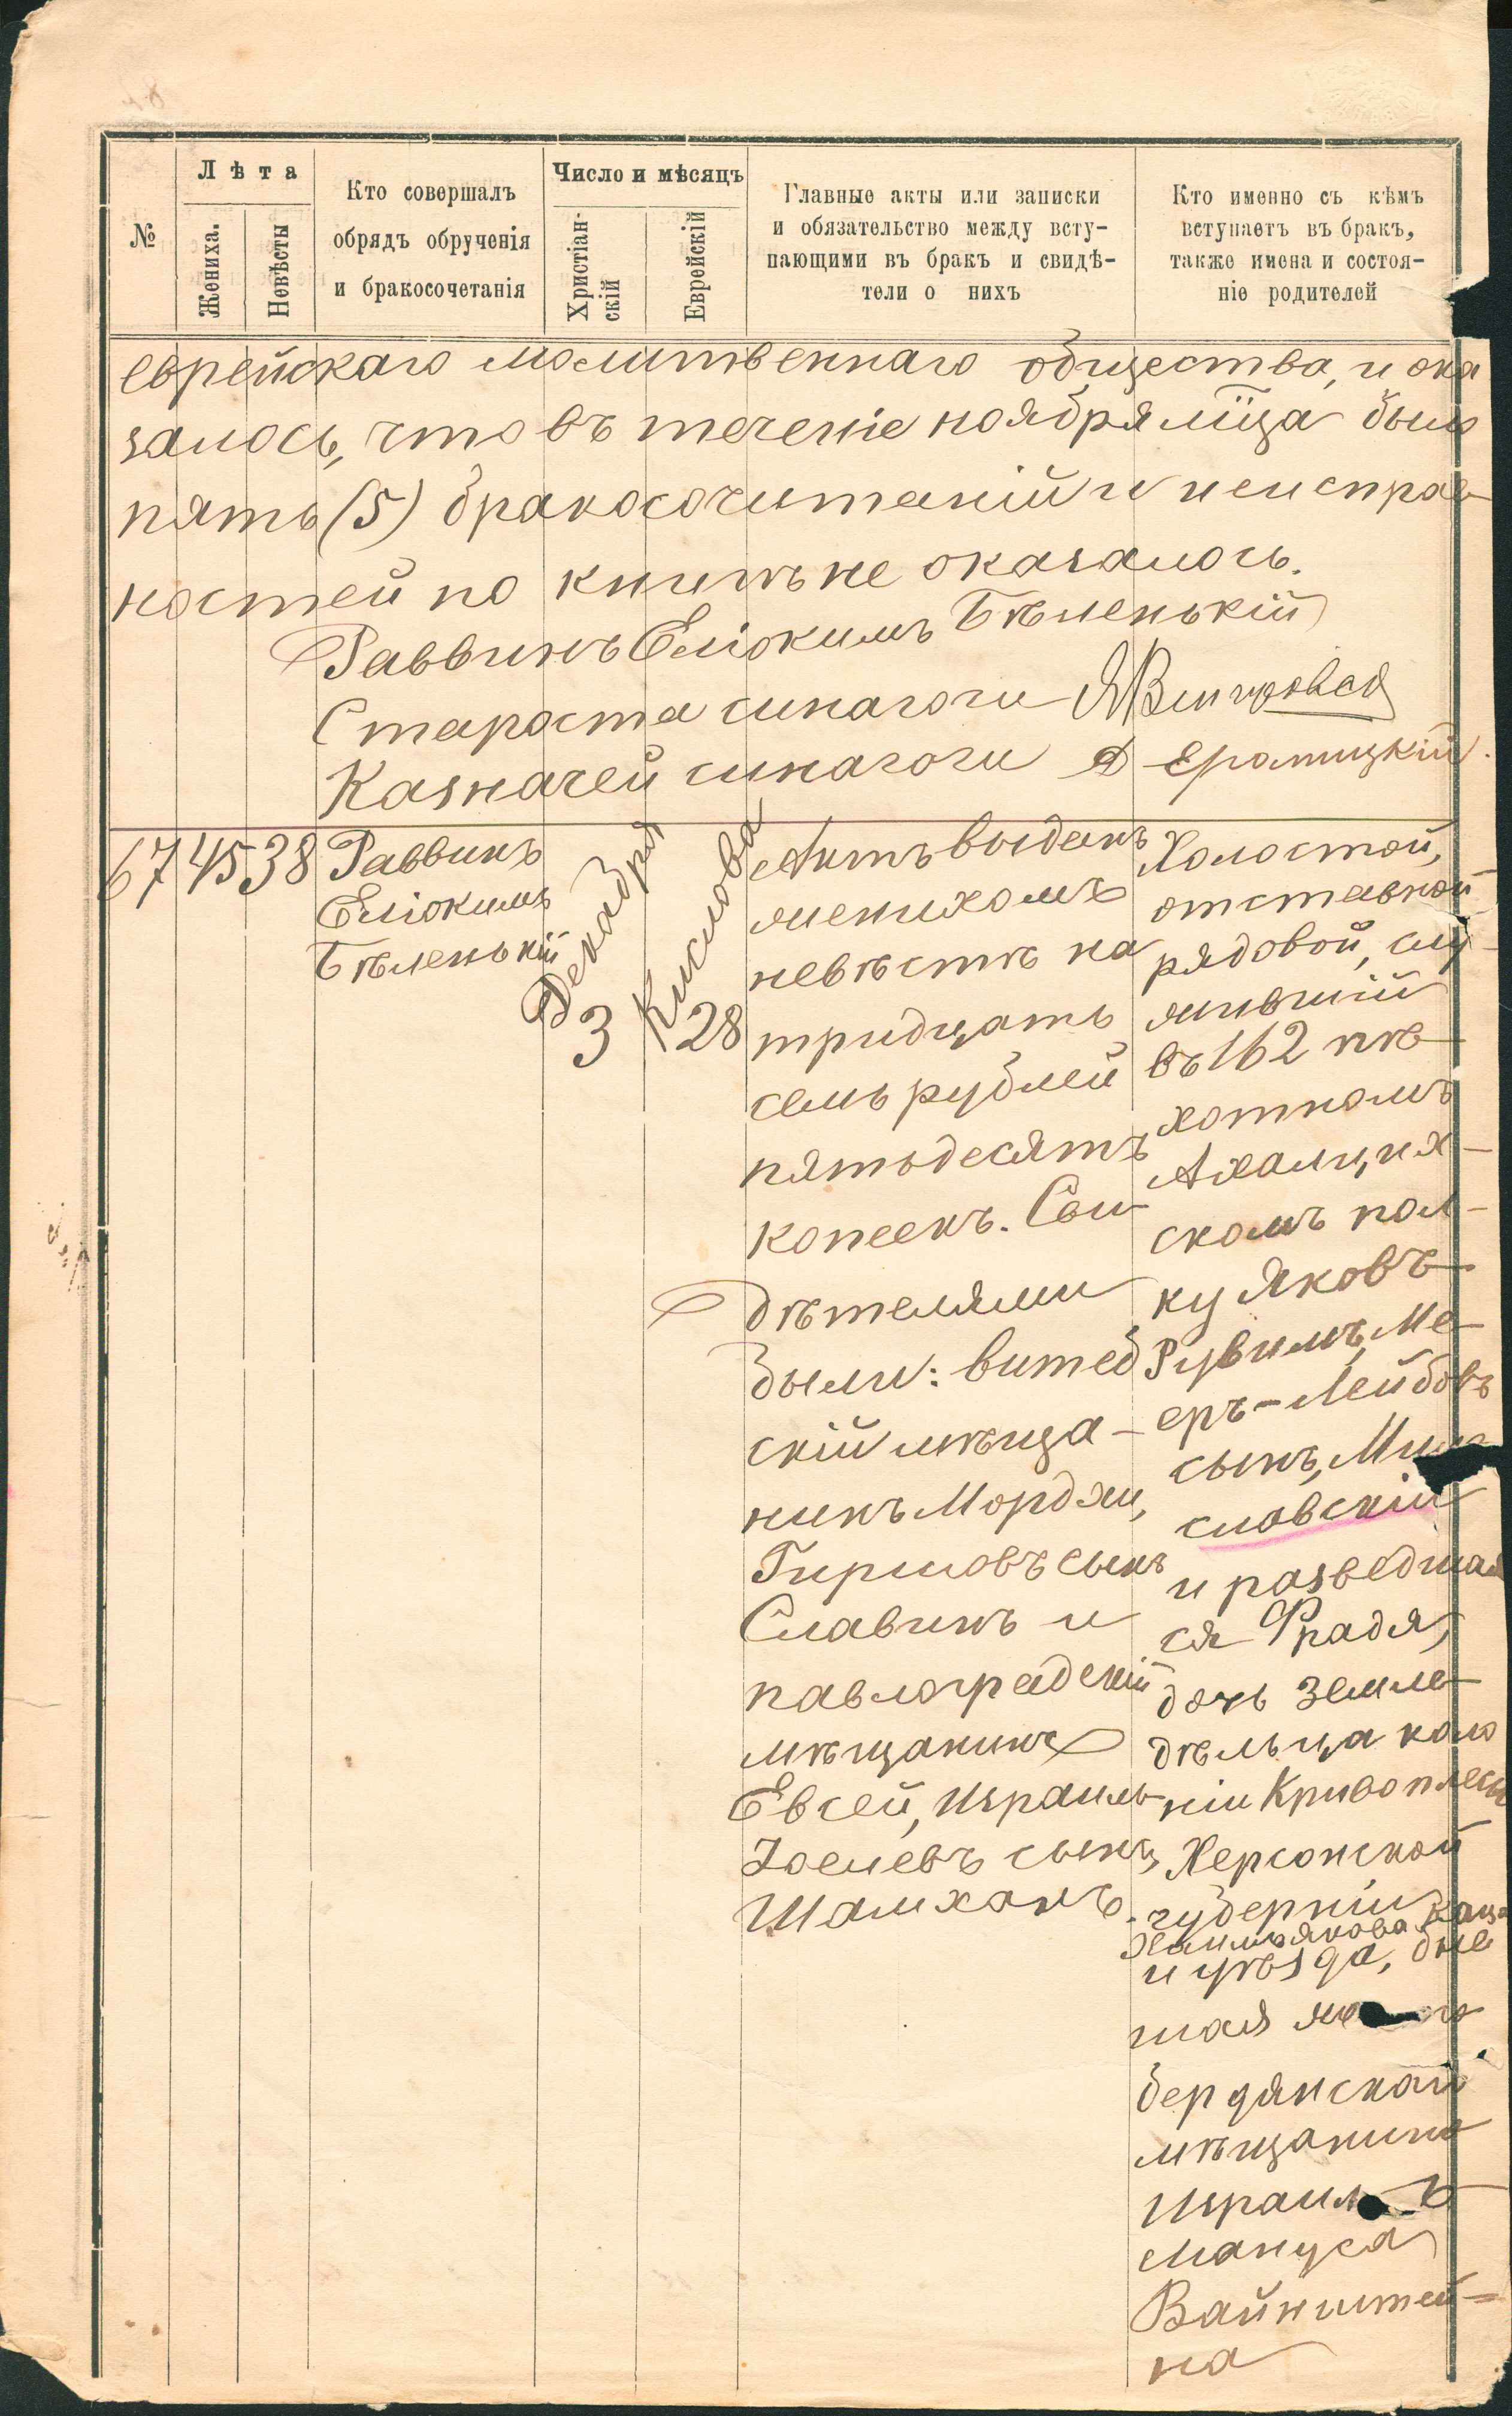 №
Лѣта
Жениха.
Невѣсты
Кто совершалъ
обрядъ обрученія
и бракосочетанія
Число и мѣсяцъ
Христіан-
скій
Еврейскій
Главные акты или записки
и обязательство между всту-
пающими въ бракъ и свидѣ-
тели о нихъ
Кто именно съ кѣмъ
вступаетъ въ бракъ,
также имена и состоя-
ніе родителей
еврейскаго молитвеннаго общества, и ока
залось, что въ теченіе ноября мѣсяца было
пять (5) бракосочитаній и неисправ-
ностей по книгѣ не оказалось.
Раввинъ Еліокимъ Бѣленькій
Староста синагоги
Казначей синагоги
67 45 38
Раввинъ
Еліокимъ
Бѣленькій
Декабря
3
Кислова
28
Актъ выданъ
женихомъ
невѣстѣ на
тридцать
семь рублей
пятьдесятъ
копеекъ. Сви-
дѣтелями
были: витеб
скій мѣща-
нинъ Мордхи,
Гиршовъ сынъ
Славинъ и
павлоградскій
мѣщанинъ
Евсей, Израиль
Іоелевъ сынъ
Шамханъ.
Холостой,
отставной
рядовой, слу-
жившій
въ 162 пѣ-
хотномъ
Ахалцих-
скомъ пол-
ку Яковъ
Рувимъ, Ме-
еръ-Лейбовъ
сынъ,
словскій
и разведшая
ся Фрадя,
дочь земле-
дѣльца коло
ніи Кривоплесы
Херсонской
губерніи
Хаимъ Якова Каца
и уѣзда, быв
шая жена
бердянскаго
мѣщанина
Израиль
Мануса
Вайнштей-
на